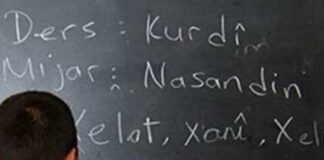 Ders : Kurdî
Mijar : Nasandin
Xelat, Xanî, Xel